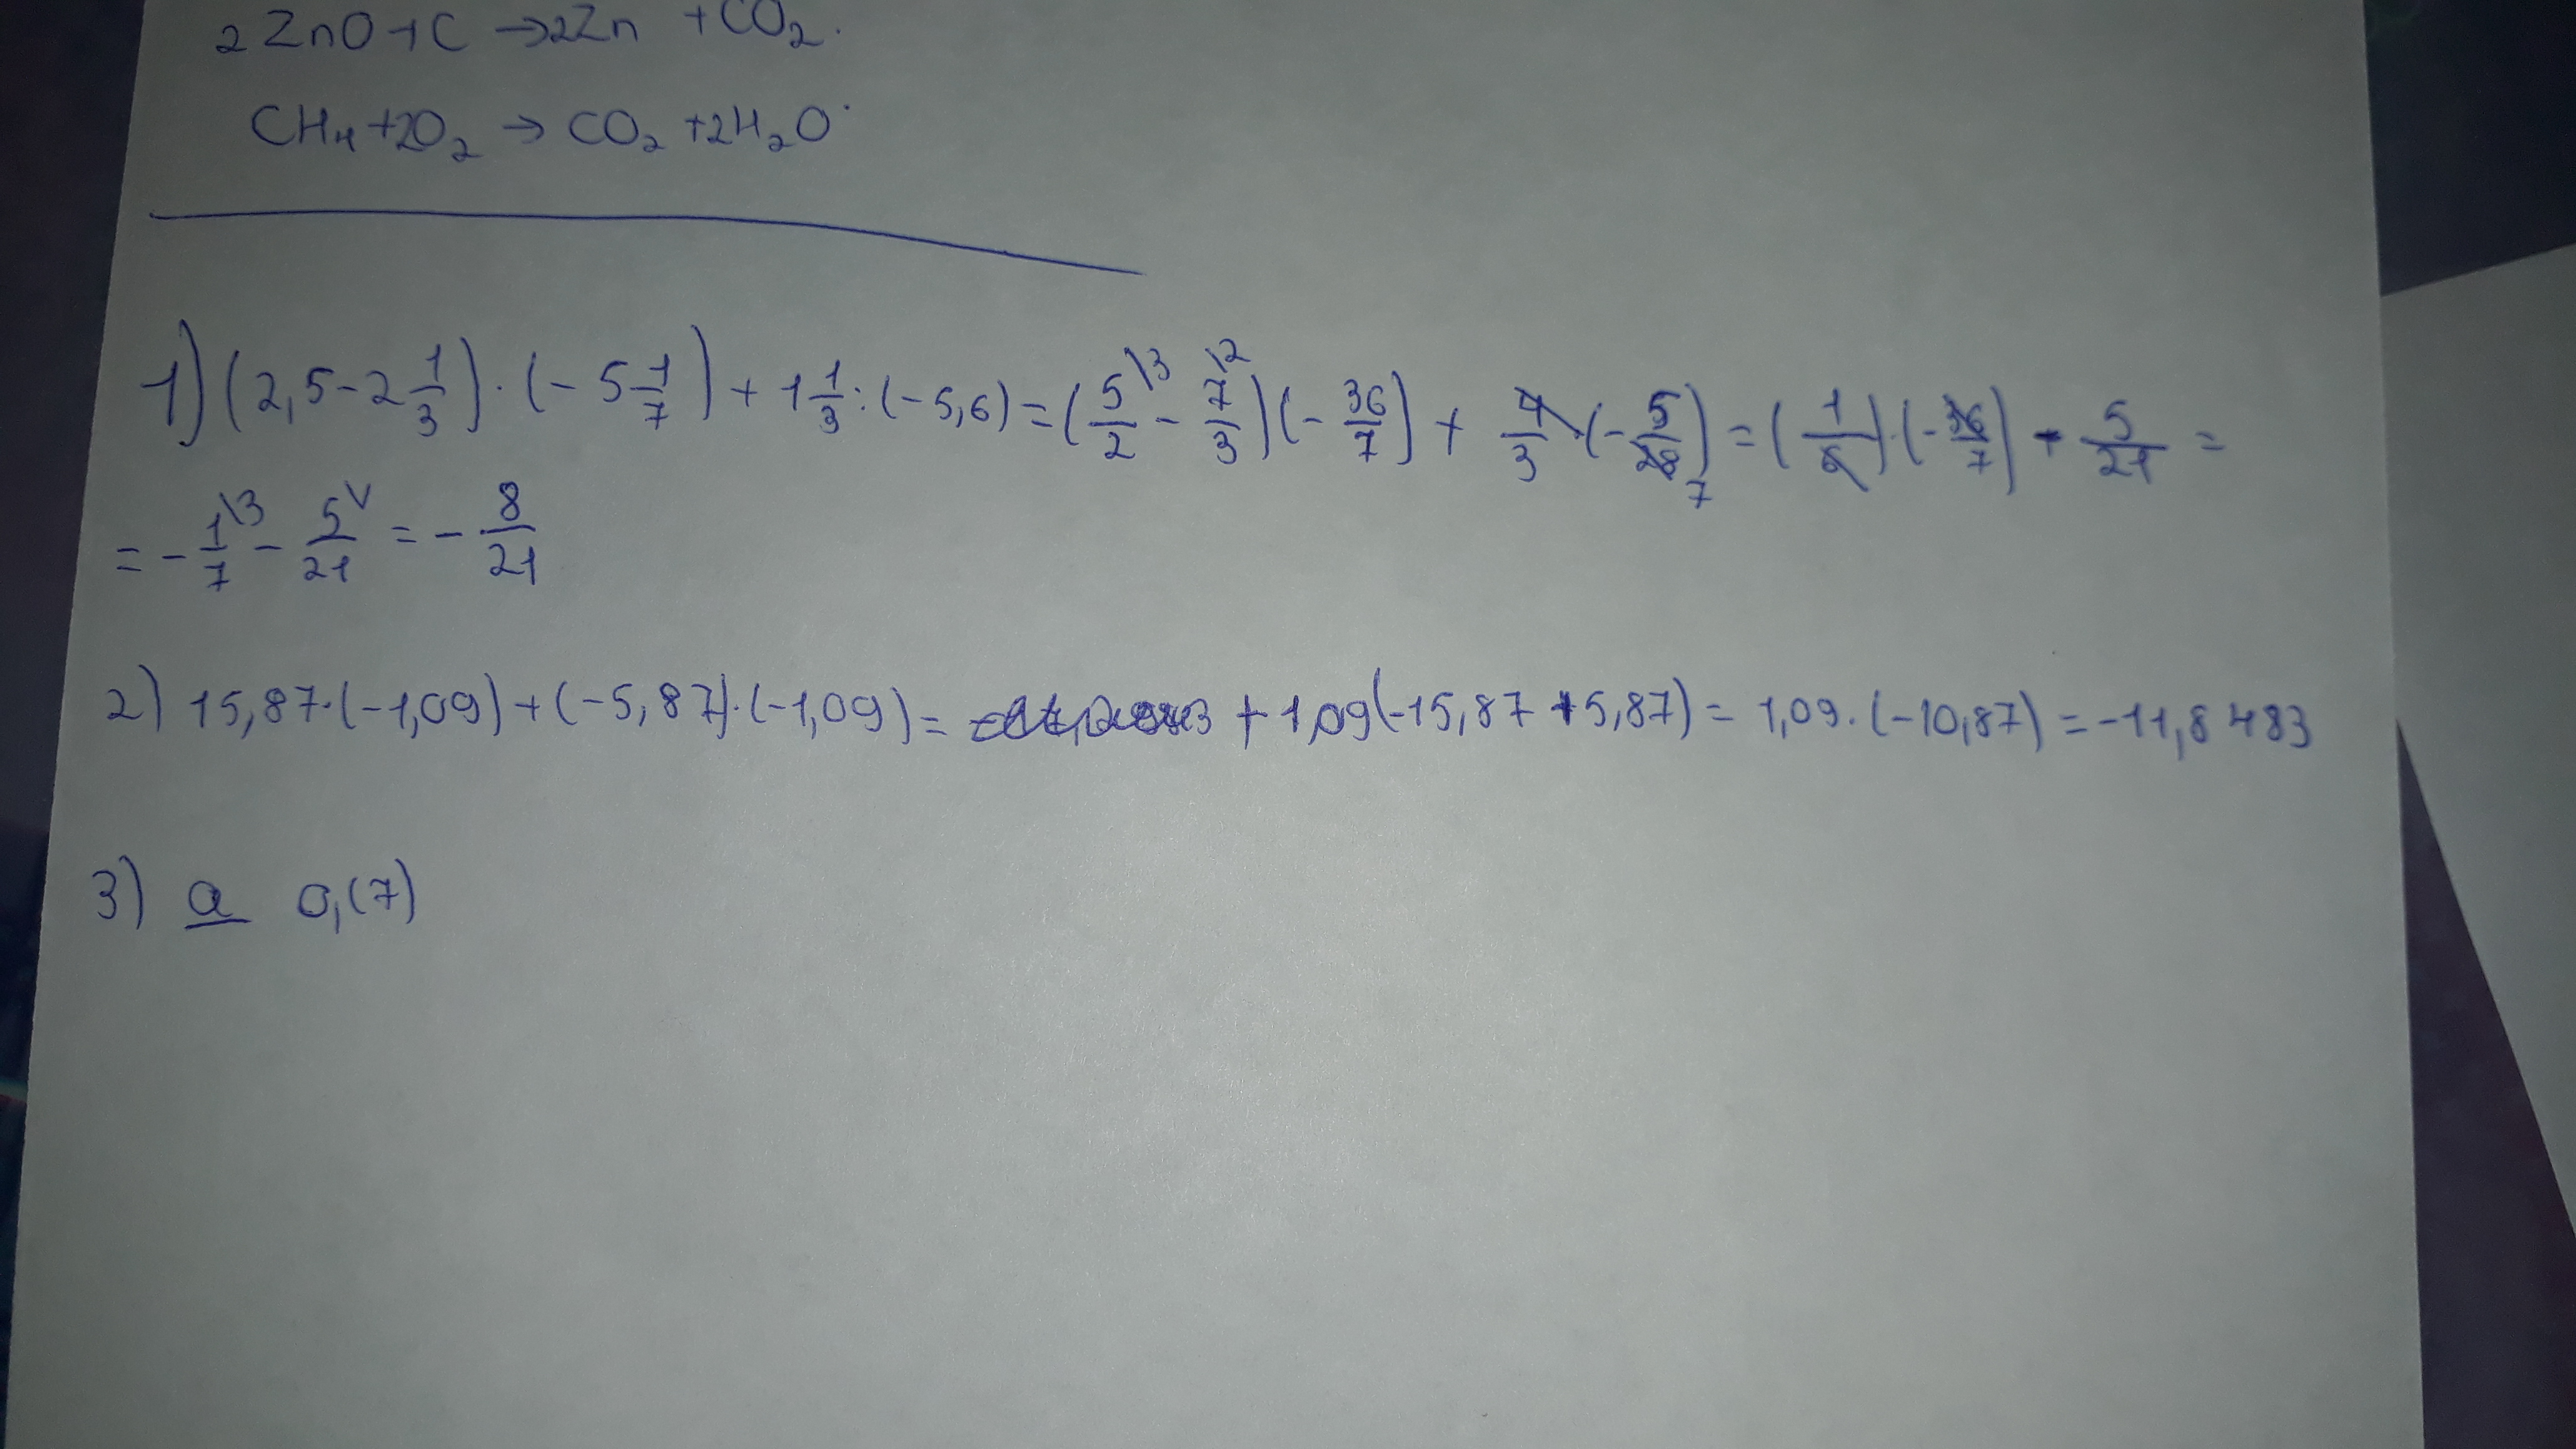 2 ZnO + C → 2Zn + CO₂.
CH₄ + 2O₂ → CO₂ + 2H₂O.
1) (2,5 - 2 1/3) · (- 5 1/7) + 1 1/3 : (-5,6) = (5/2 \3 - 7/3 \2)(- 36/7) + 4/3 · (- 5/28) 7 = (1/6) · (- 36/7) - 5/21 =
= - 1/7 \3 - 5/21 \/ = - 8/21
2) 15,87 · (-1,09) + (-5,87) · (-1,09) = + 1,09 (-15,87 + 5,87) = 1,09 · (-10,87) = -11,8483
3) a 0,(7)